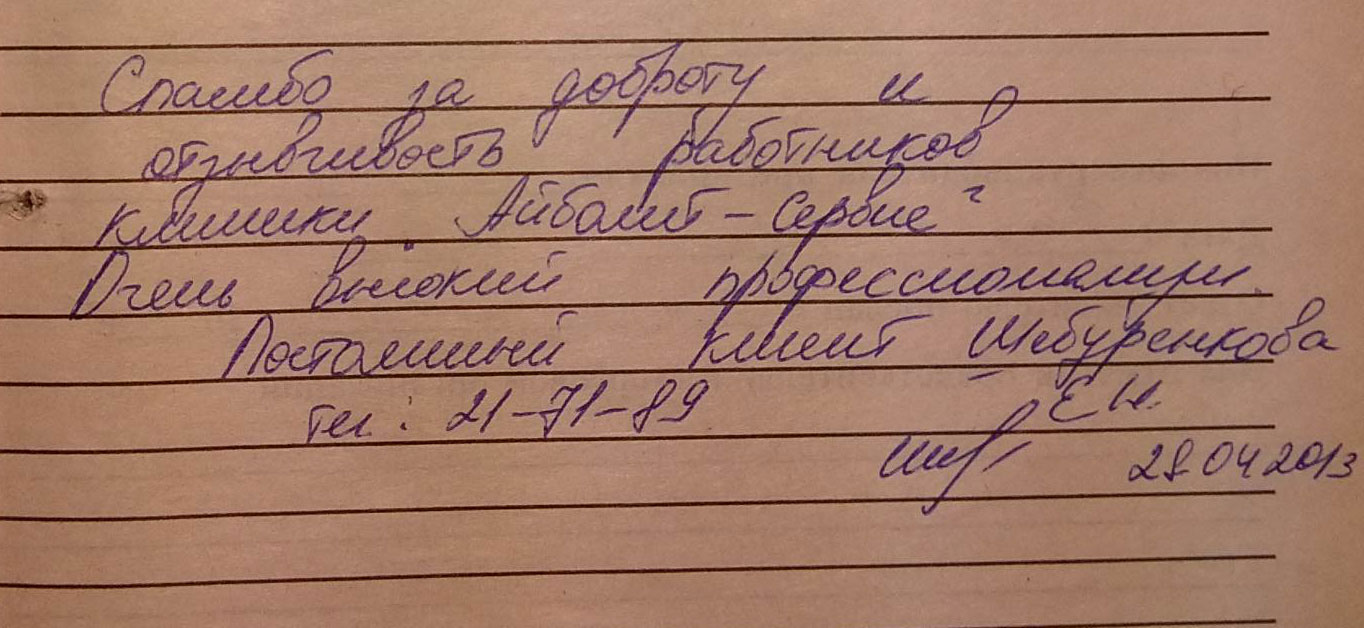 Спасибо за доброту и
отзывчивость работников
клиники "Айболит-Сервис"
Очень высокий профессионализм.
Постоянный клиент Шебуренкова
Е.Н.
тел: 21-71-89
28.04.2013